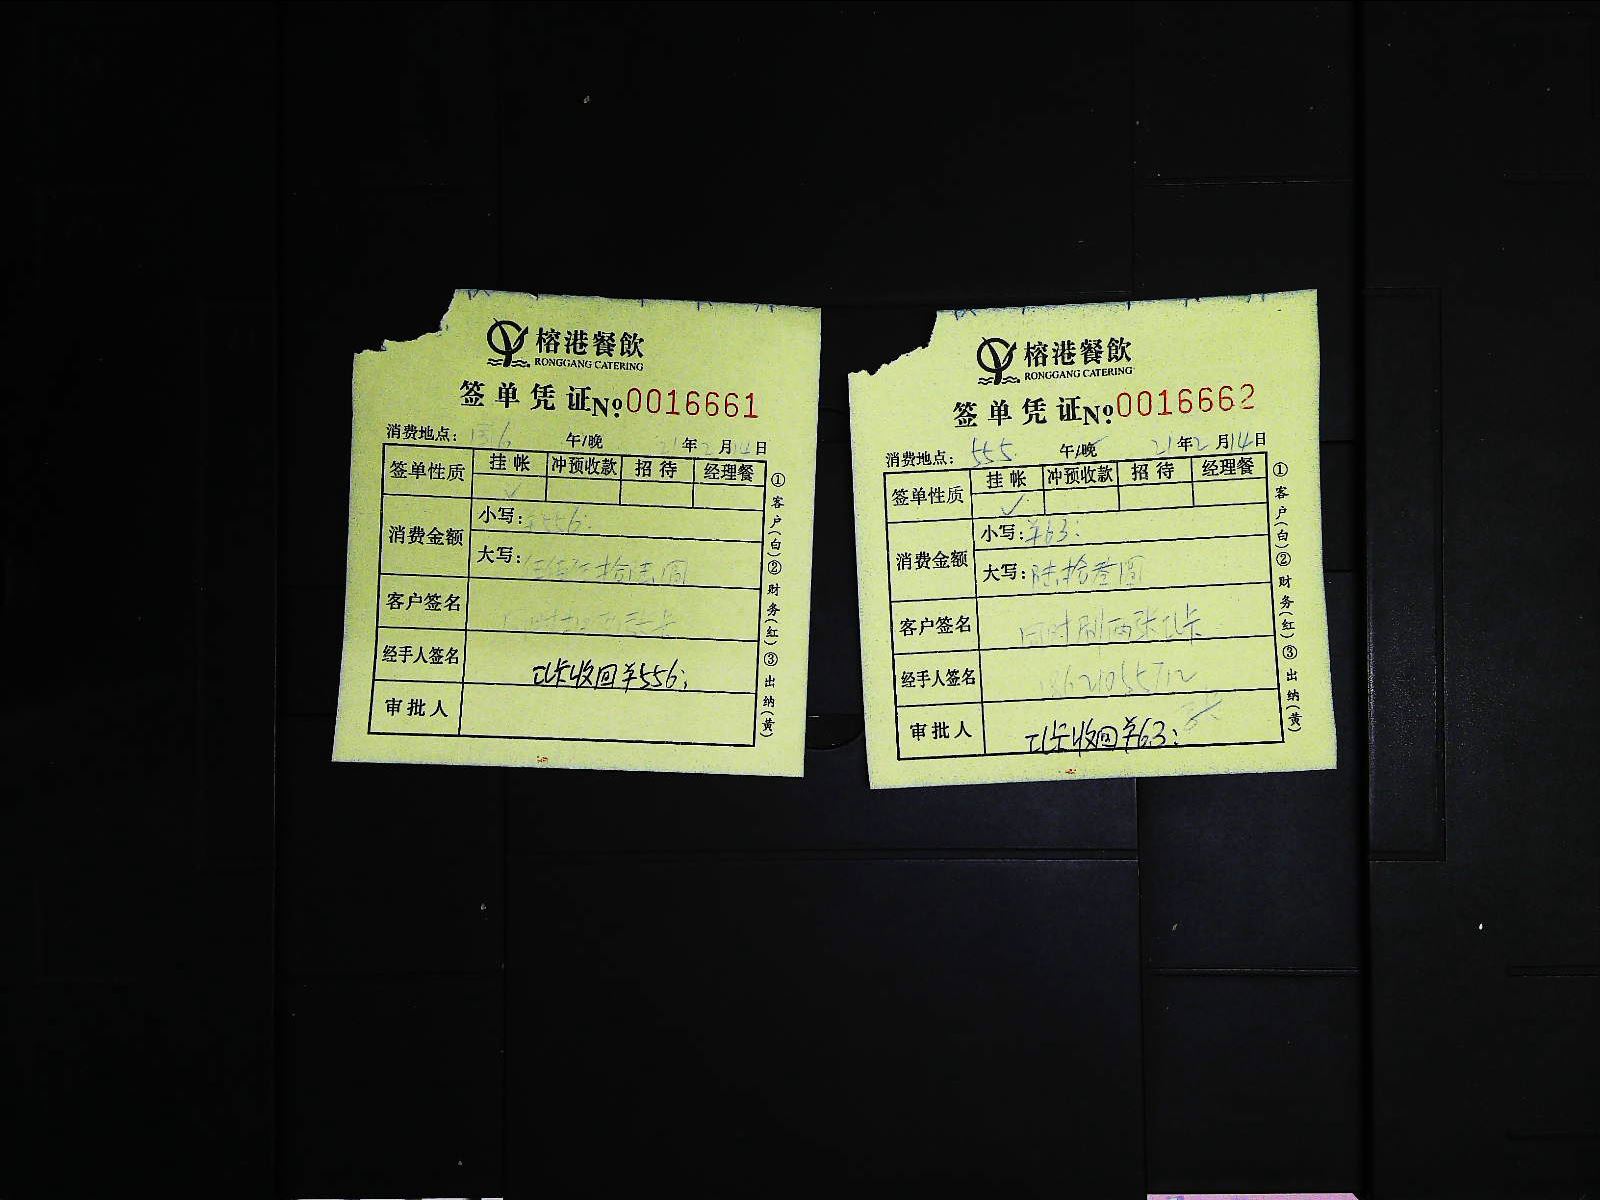 榕港餐飲
RONGGANG CATERING
签单凭证 No 0016661
消费地点: 午/晚 21年2月14日
签单性质 挂帐 冲预收款 招待 经理餐
✓
消费金额 小写: ¥556:
大写: 伍佰伍拾陆圆
客户签名
经手人签名 收回¥556:
审批人
①客户(白)②财务(红)③出纳(黄)
榕港餐飲
RONGGANG CATERING
签单凭证 No 0016662
消费地点: 555 午/晚 21年2月14日
签单性质 挂帐 冲预收款 招待 经理餐
✓
消费金额 小写: ¥63:
大写: 陆拾叁圆
客户签名 同时刷两张卡
经手人签名
审批人 收回¥63:
①客户(白)②财务(红)③出纳(黄)